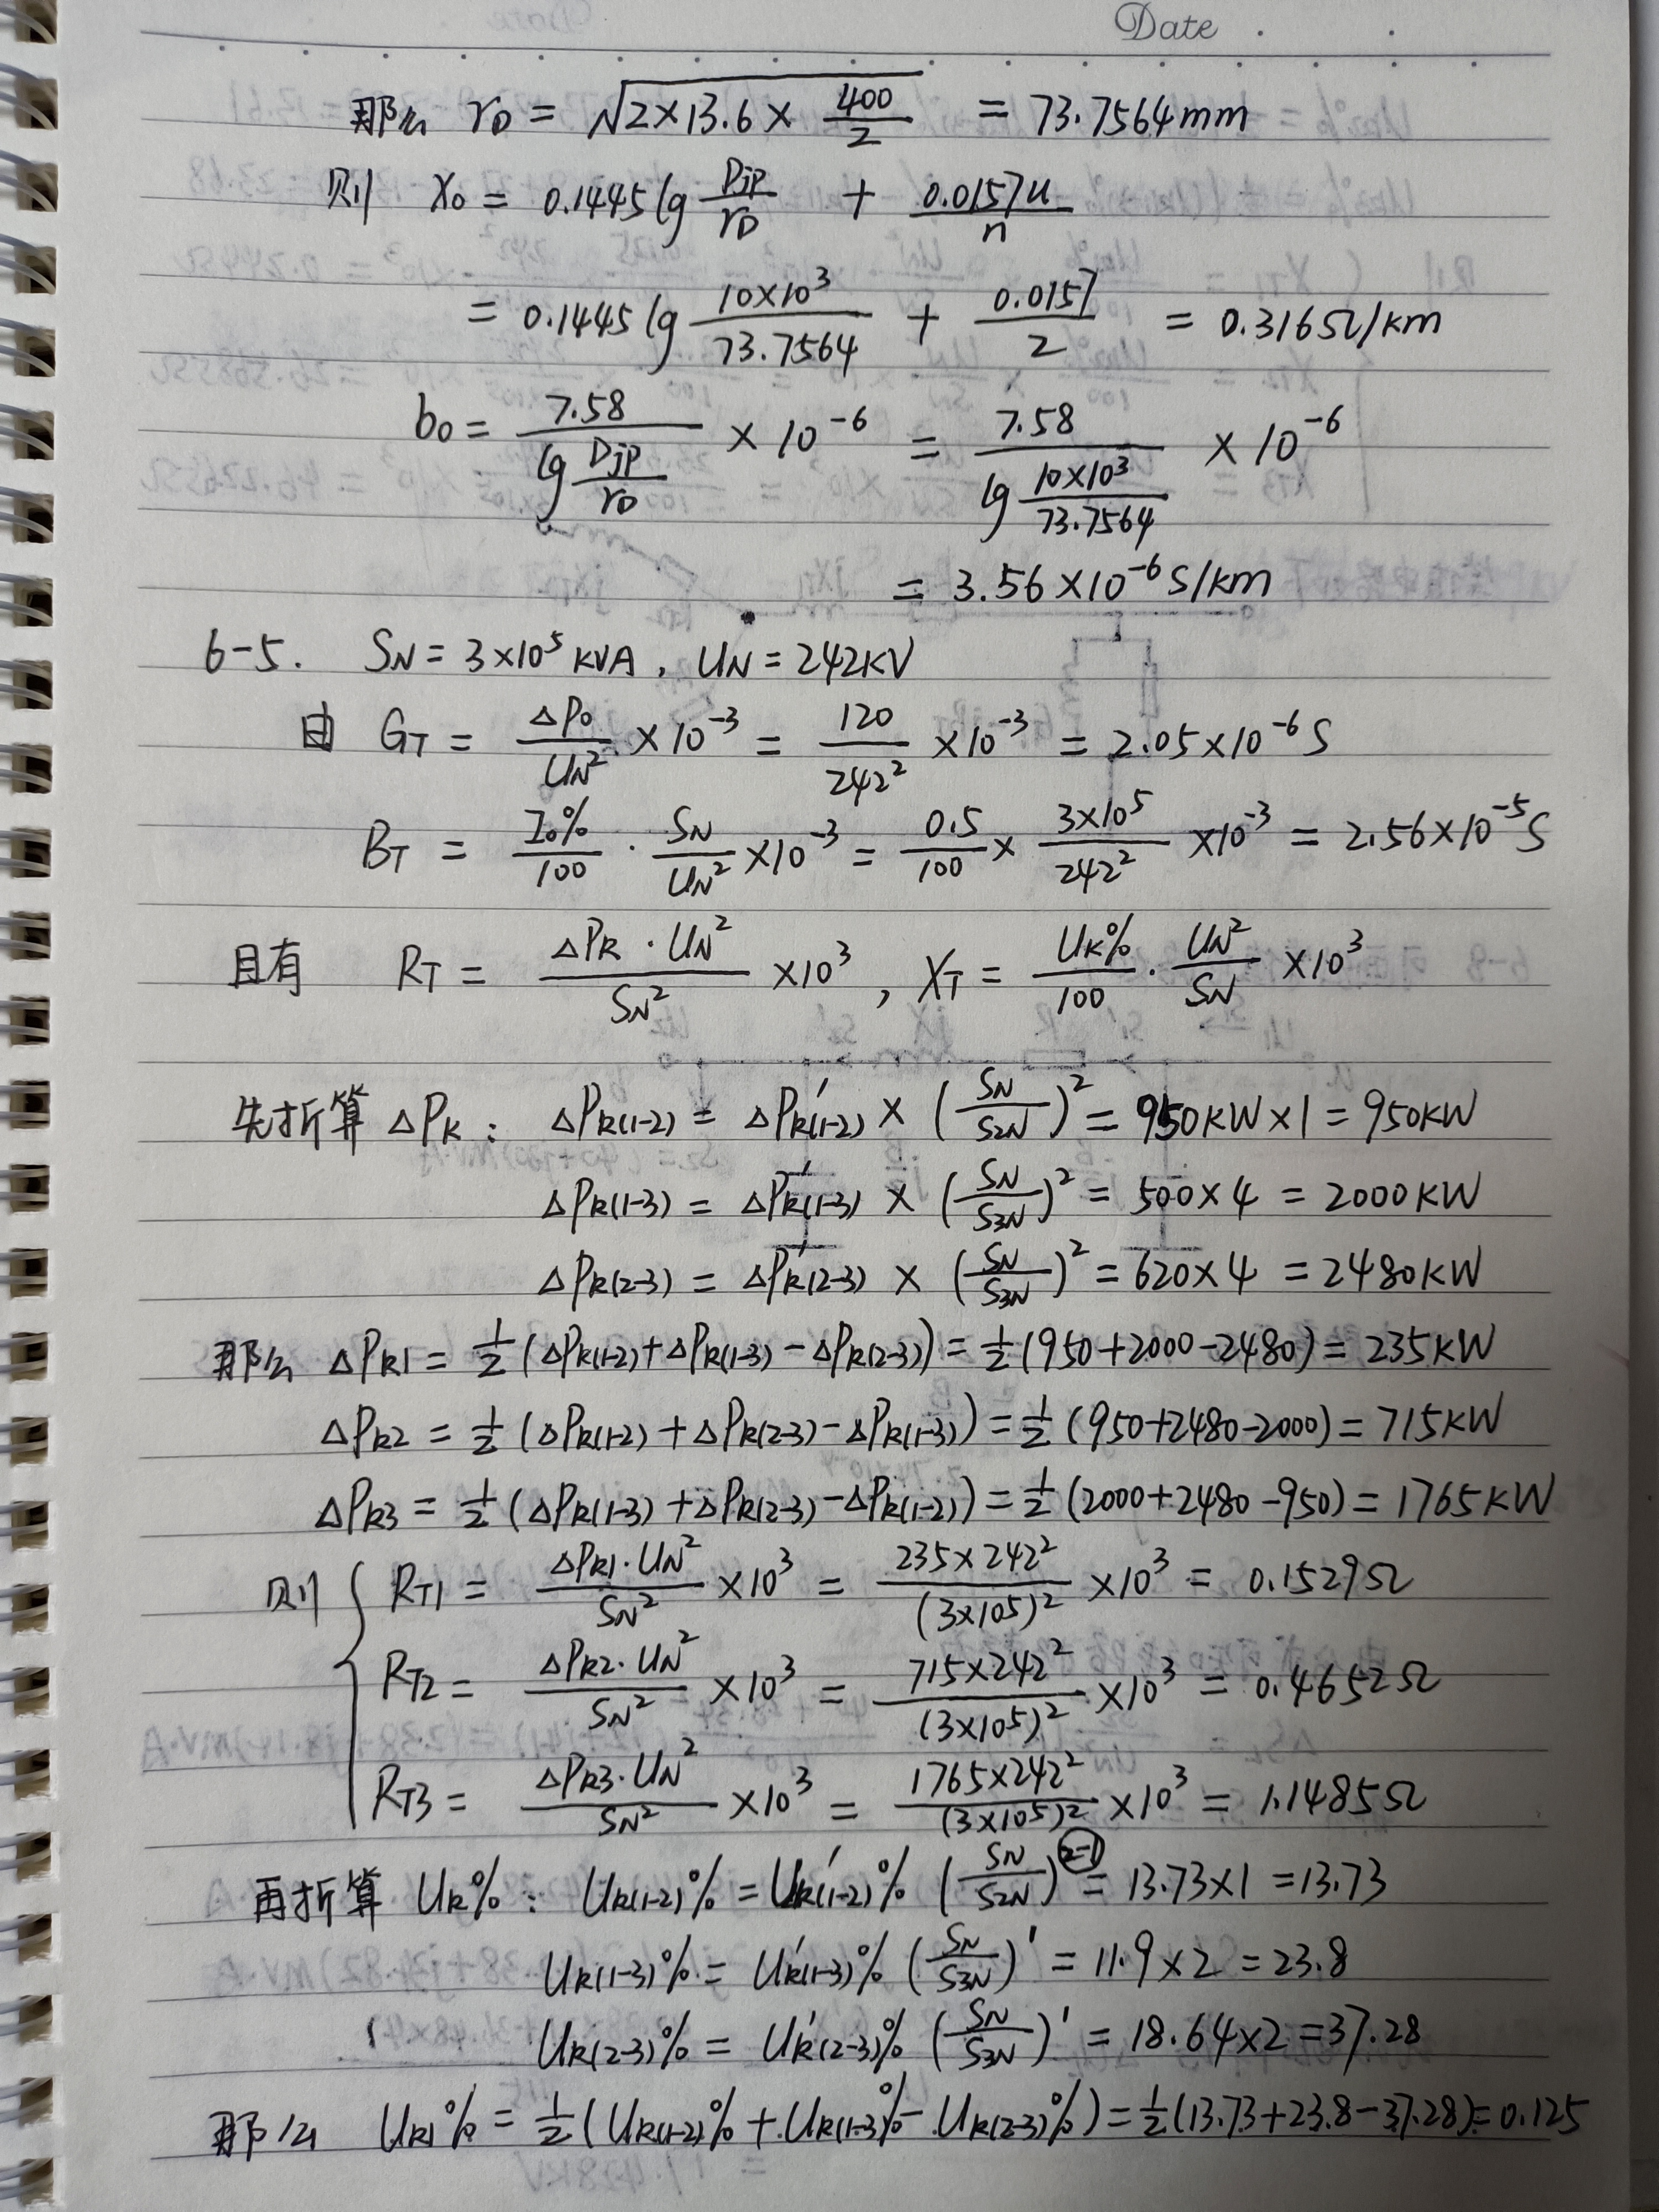 Date
那么 r_D = √(2×13.6×400/2) = 73.7564mm
则 X0 = 0.1445 lg Djp/r_D + 0.0157u/n
= 0.1445 lg (10×10³/73.7564) + 0.0157/2 = 0.316Ω/km
b0 = 7.58/(lg Djp/r_D) × 10⁻⁶ = 7.58/(lg 10×10³/73.7564) × 10⁻⁶
= 3.56×10⁻⁶ S/km
6-5. SN = 3×10⁵ KVA, UN = 242KV
由 GT = ΔP0/UN² ×10⁻³ = 120/242² ×10⁻³ = 2.05×10⁻⁶ S
BT = I0%/100 · SN/UN² ×10⁻³ = 0.5/100 × 3×10⁵/242² ×10⁻³ = 2.56×10⁻⁵ S
且有 RT = ΔPk·UN²/SN² ×10³, XT = Uk%/100 · UN²/SN ×10³
先折算ΔPk: ΔPk(1-2) = ΔP'k(1-2) × (SN/S2N)² = 950KW×1 = 950KW
ΔPk(1-3) = ΔP'k(1-3) × (SN/S3N)² = 500×4 = 2000KW
ΔPk(2-3) = ΔP'k(2-3) × (SN/S3N)² = 620×4 = 2480KW
那么 ΔPk1 = ½(ΔPk(1-2)+ΔPk(1-3)-ΔPk(2-3)) = ½(950+2000-2480) = 235KW
ΔPk2 = ½(ΔPk(1-2)+ΔPk(2-3)-ΔPk(1-3)) = ½(950+2480-2000) = 715KW
ΔPk3 = ½(ΔPk(1-3)+ΔPk(2-3)-ΔPk(1-2)) = ½(2000+2480-950) = 1765KW
则 { RT1 = ΔPk1·UN²/SN² ×10³ = 235×242²/(3×10⁵)² ×10³ = 0.1529Ω
RT2 = ΔPk2·UN²/SN² ×10³ = 715×242²/(3×10⁵)² ×10³ = 0.4652Ω
RT3 = ΔPk3·UN²/SN² ×10³ = 1765×242²/(3×10⁵)² ×10³ = 1.1485Ω
再折算 Uk%: Uk(1-2)% = U'k(1-2)% (SN/S2N) = 13.73×1 = 13.73
Uk(1-3)% = U'k(1-3)% (SN/S3N)' = 11.9×2 = 23.8
Uk(2-3)% = U'k(2-3)% (SN/S3N)' = 18.64×2 = 37.28
那么 Uk1% = ½(Uk(1-2)%+Uk(1-3)%-Uk(2-3)%) = ½(13.73+23.8-37.28) = 0.125